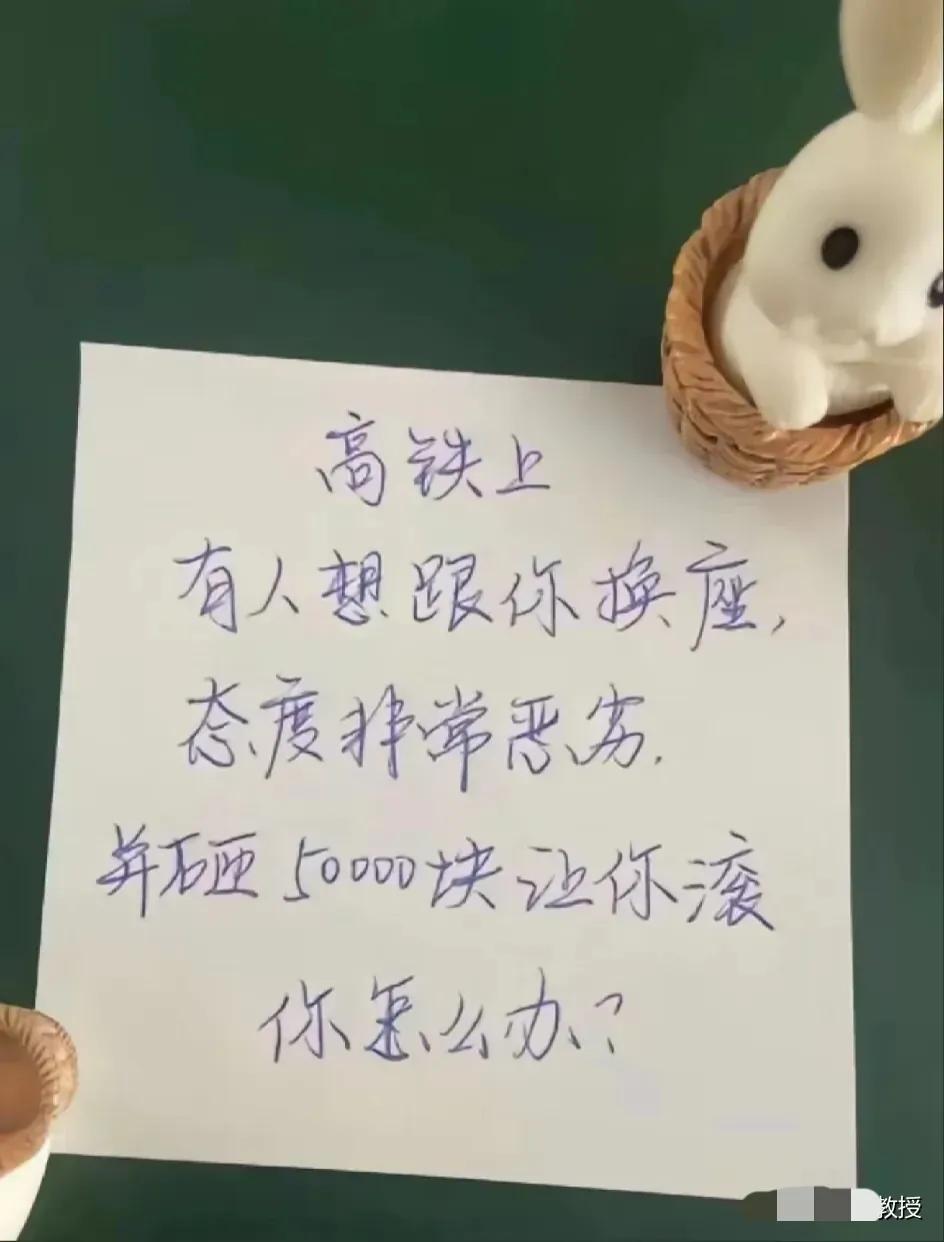 高铁上
有人想跟你换座，
态度非常恶劣．
并砸50000块让你滚
你怎么办？
教授